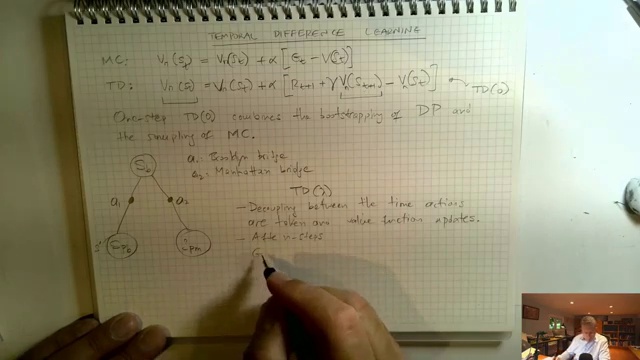 TEMPORAL DIFFERENCE LEARNING
MC: Vπ(St) = Vπ(St) + α [Gt - V(St)]
TD: Vπ(St) = Vπ(St) + α [Rt+1 + γVπ(St+1) - Vπ(St)] TD(0)
One-step TD(0) combines the bootstrapping of DP and
the sampling of MC.
a1: Brooklyn bridge
a2: Manhattan bridge
So
a1
a2
2pm
TD(λ)
- Decoupling between the time actions
are taken and value function updates.
- After n-steps
G